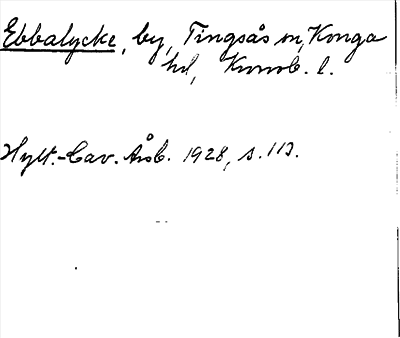 Ebbalycke, by, Tingsås sn, Konga
hd, Kronob. l.
Hylt.-Cav. Årsb. 1928, s. 113.